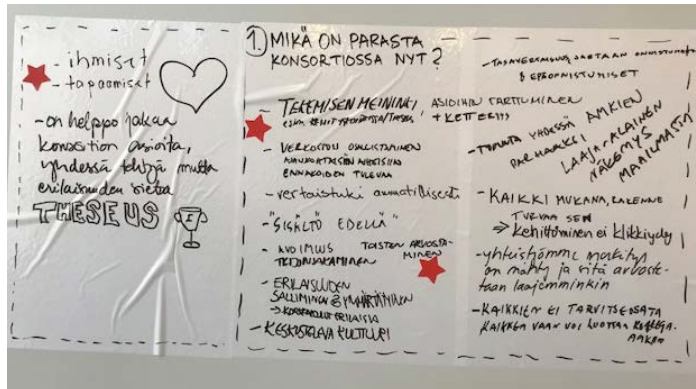 - ihmiset
- tapaamiset
- on helppo jakaa
konsortion asioita,
yhdessä tehtyjä mutta
erilaisuuden sietoa
THESEUS
1. MIKÄ ON PARASTA
KONSORTIOSSA NYT?
- TEKEMISEN MEININKI, ASIOIHIN TARTTUMINEN
+ KETTERYYS
- VERKOSTON OSALLISTAMINEN
AJANKOHTAISIIN AIHEISIIN
ENNAKOIDEN TULEVAA
- vertaistuki ammatillisesti
- "SISÄLTÖ EDELLÄ"
- AVOIMUUS TOISTEN ARVOSTA-
MINEN
TIEDONJAKAMINEN
- ERILAISUUDEN
SALLIMINEN & YMMÄRTÄMINEN
ERILAISIA
- KESKUSTELEVA KULTTUURI
- TASAVERTAISUUS, JAETAAN ONNISTUMISET
& EPÄONNISTUMISET
- TUODAA YHDESSÄ AMKIEN
PARHAAKSI
LAAJA-ALAINEN
NÄKEMYS
MAAILMASTA
- KAIKKI MUKANA, RAKENNE
TURVAA SEN
⇒ Kehittäminen ei klikkiydy
- yhteistyömme merkitys
on nähty ja sitä arvoste-
taan laajemminkin
- KAIKKIEN EI TARVITSE OSATA
KAIKKEA VAAN VOI LUOTTAA KOLLEGA-